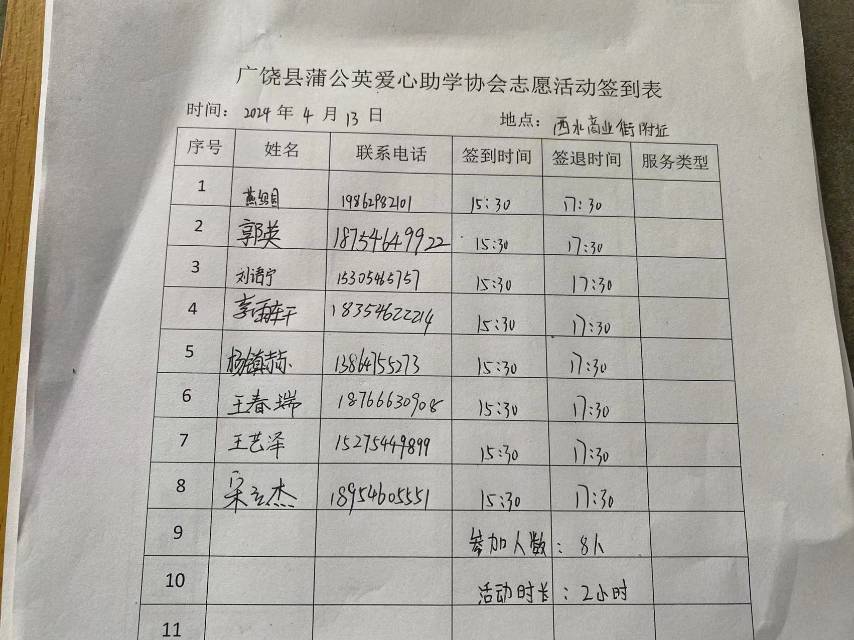 广饶县蒲公英爱心助学协会志愿活动签到表
时间：2024 年 4 月 13 日 地点：西水商业街附近
序号 姓名 联系电话 签到时间 签退时间 服务类型
1 19862982101 15:30 17:30
2 郭英 18754649922 15:30 17:30
3 刘语宁 15305465757 15:30 17:30
4 18354622214 15:30 17:30
5 杨镇赫 13864755273 15:30 17:30
6 王春瑞 18766630908 15:30 17:30
7 王艺泽 15275449899 15:30 17:30
8 宋立杰 18954605551 15:30 17:30
9 参加人数：8人
10 活动时长：2小时
11